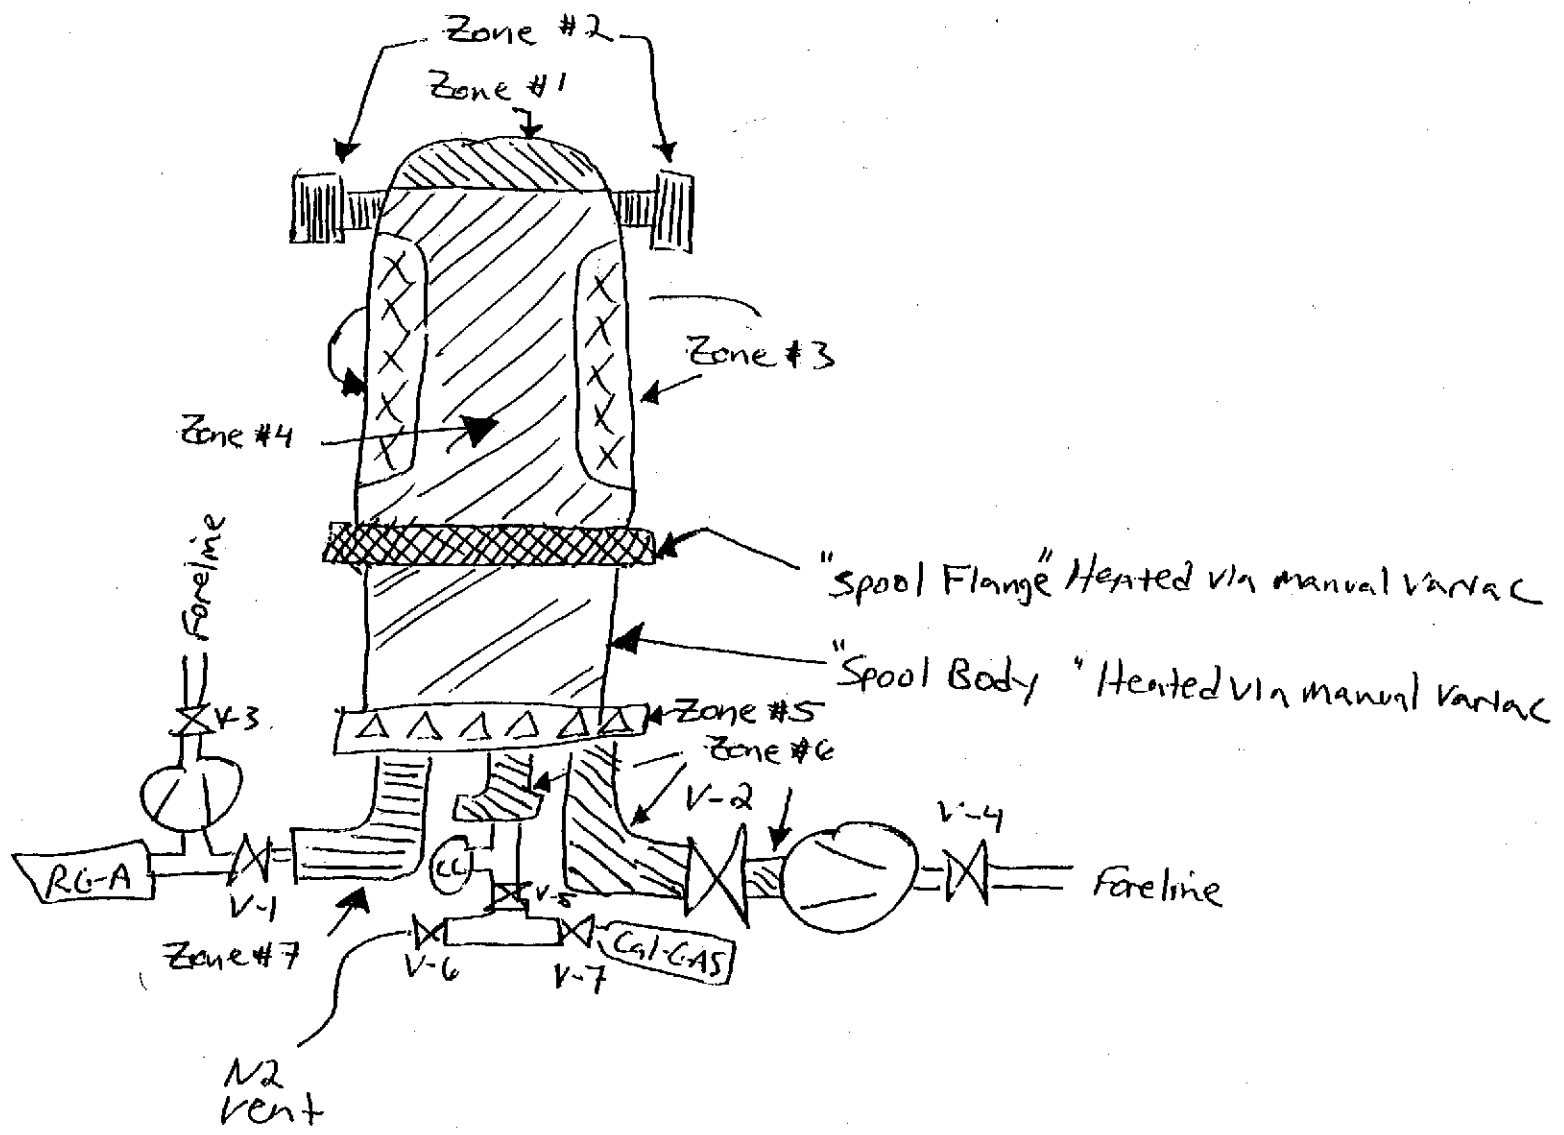 Zone #2
Zone #1
Zone #3
Zone #4
Foreline
"Spool Flange" Heated via manual variac
"Spool Body" Heated via manual variac
V-3
Zone #5
Zone #6
V-2
V-4
RG-A
V-1
CC
V-5
Foreline
Zone #7
V-6
V-7
Cal-GAS
N2
vent